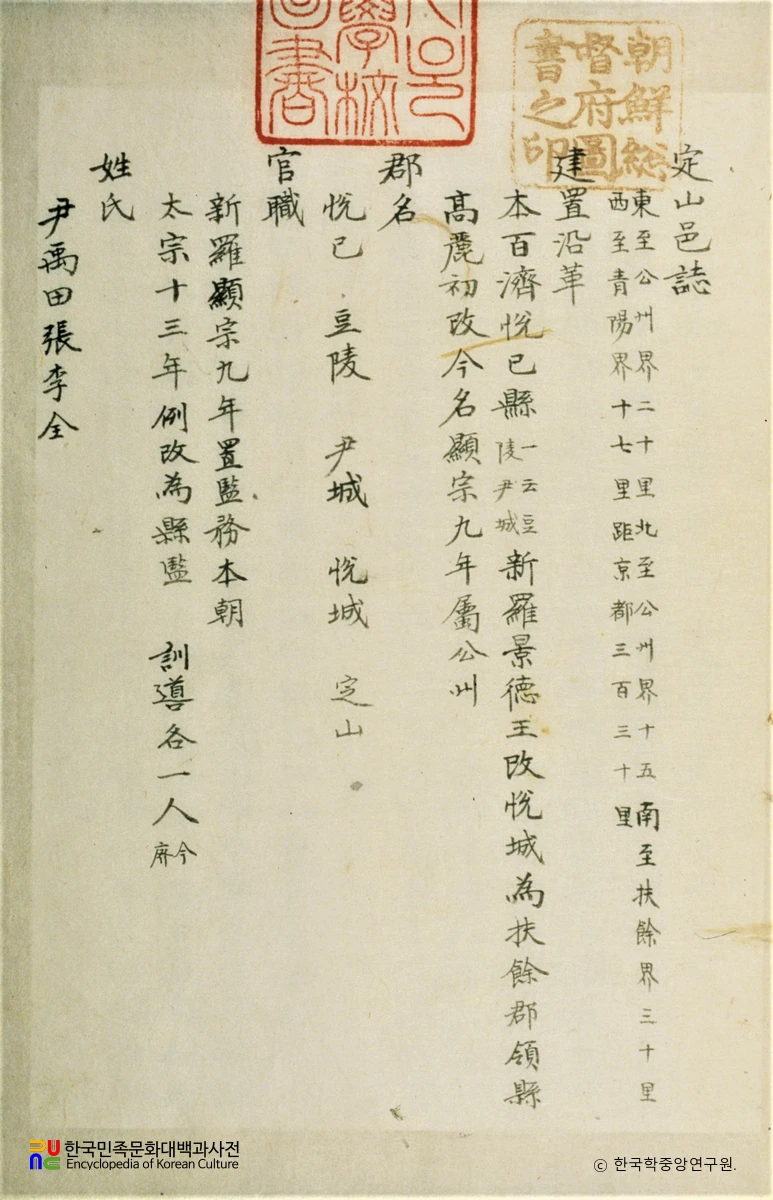 學校
書
朝鮮総
督府圖
書之印
定山邑誌
東至公州界二十里北至公州界十五南至扶餘界三十里
西至青陽界十七里距京都三百三十里
建置沿革
本百濟悅已縣一云豆陵尹城新羅景德王改悅城為扶餘郡領縣
高麗初改今名顯宗九年屬公州
郡名
悅已 豆陵 尹城 悅城 定山
官職
新羅顯宗九年置監務本朝
太宗十三年例改為縣監 訓導各一人 今
姓氏
尹禹田張李全
한국민족문화대백과사전
Encyclopedia of Korean Culture
ⓒ 한국학중앙연구원.